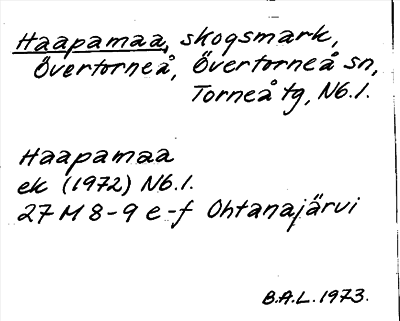 Haapamaa, skogsmark,
Övertorneå, Övertorneå sn,
Torneå tg, Nb.l.
Haapamaa
ek (1972) Nb.l.
27 M 8-9 e-f Ohtanajärvi
B.A.L. 1973.